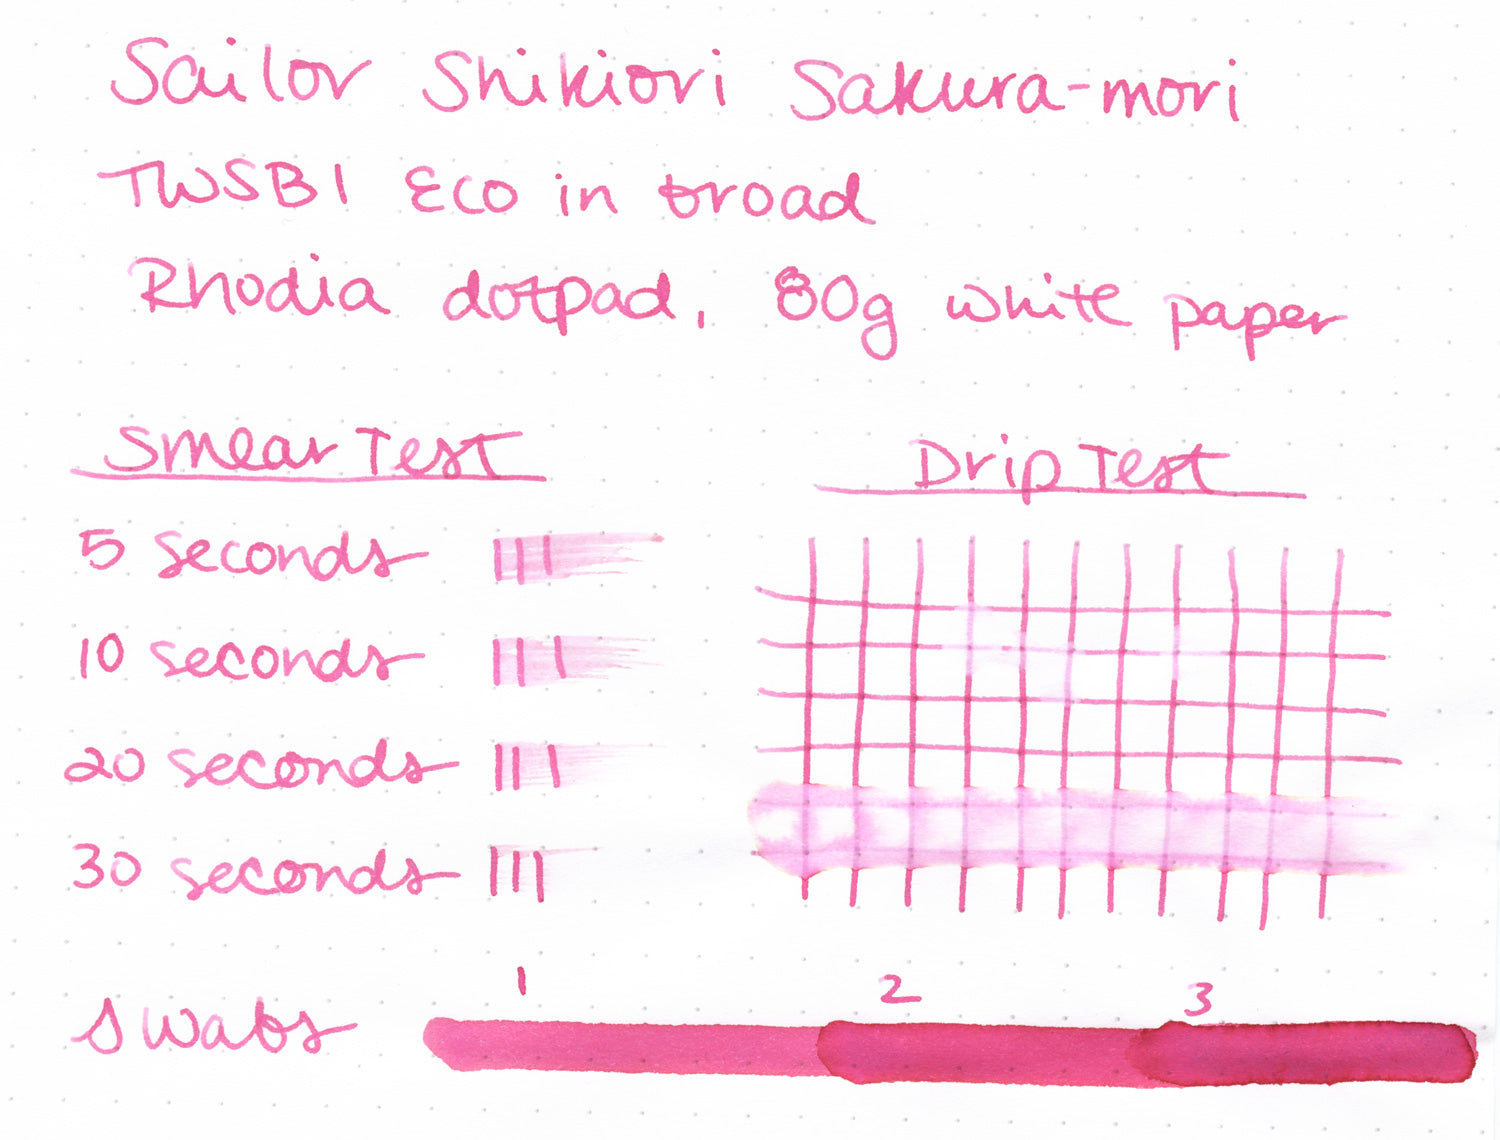 Sailor Shikiori Sakura-mori
TWSBI Eco in broad
Rhodia dotpad, 80g white paper
Smear Test
5 seconds
10 seconds
20 seconds
30 seconds
Drip Test
Swabs 1 2 3